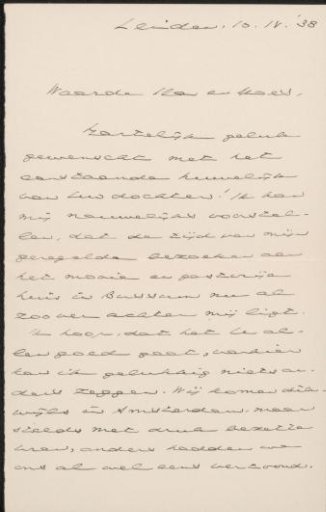 Leiden. 10. IV. '38
Waarde Ko en Koos,
Hartelijk geluk
gewenscht met het
aanstaande huwelijk
van uw dochter! Ik kan
mij nauwelijks voorstel-
len, dat de tijd van mijn
geregelde bezoeken aan
het mooie en gastvrije
huis in Bussum nu al
zoover achter mij ligt.
Ik hoop, dat het U al-
len goed gaat, van hier
kan ik gelukkig niets an-
ders zeggen. Wij komen dik-
wijls in Amsterdam, maar
steeds met druk bezette
uren, anders hadden we
ons al wel eens vertoond.